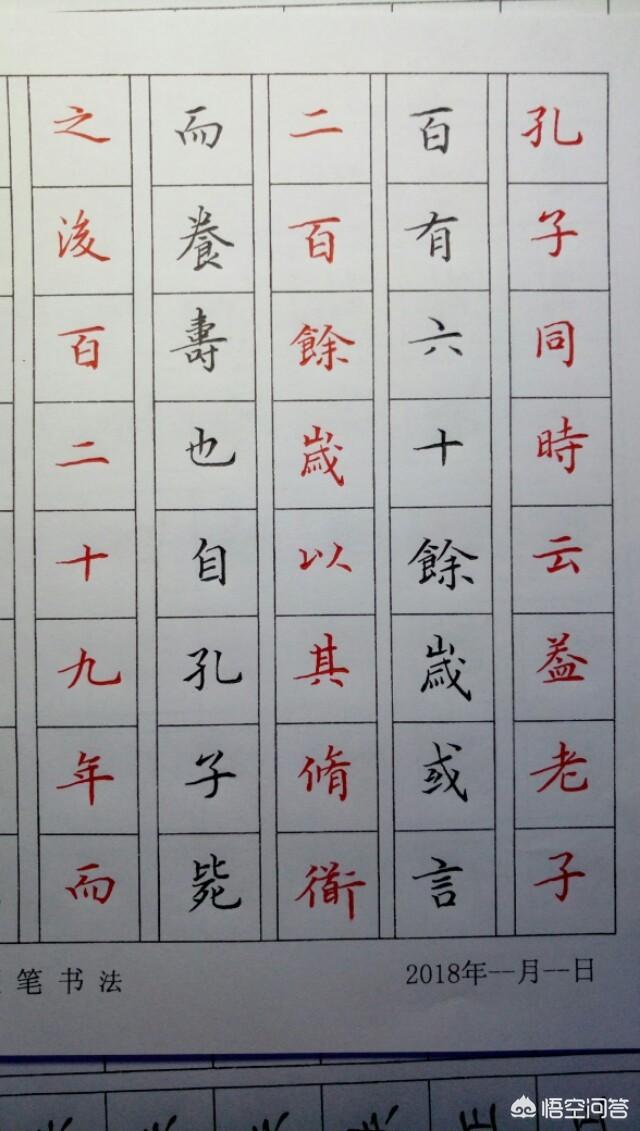 孔子同時云葢老子
百有六十餘歲或言
二百餘歲以其脩衜
而養壽也自孔子毙
之後百二十九年而
笔书法
2018年--月--日
悟空问答